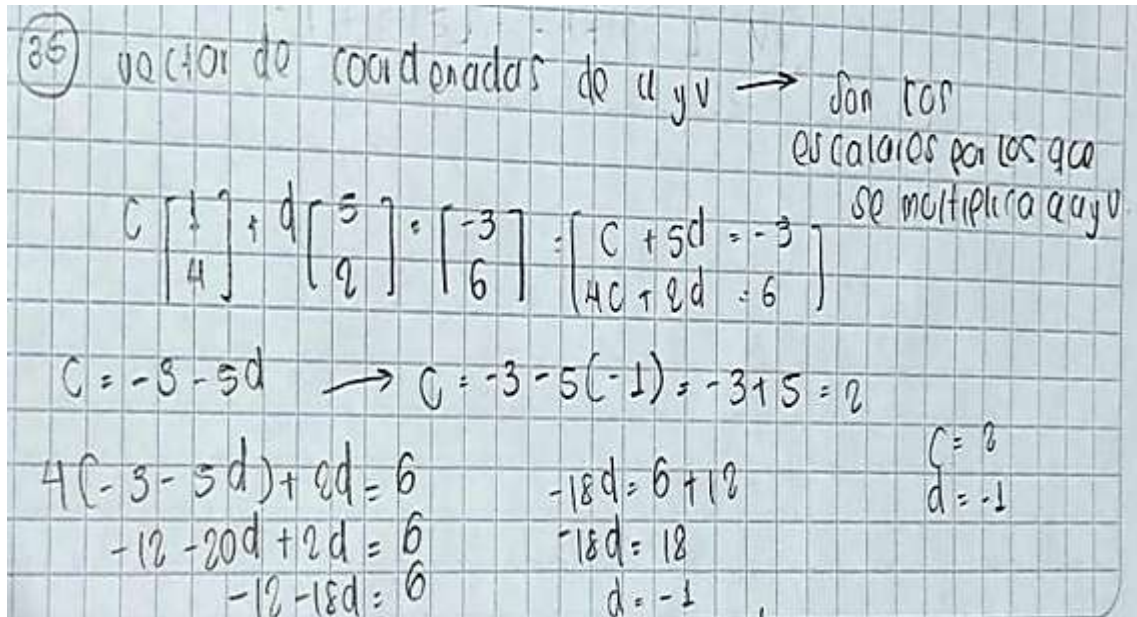 35) vector de coordenadas de u y v → Son los
escalares por los que
se multiplica a u y v.
c [1 4] + d [5 2] = [-3 6] = [c + 5d = -3 4c + 2d = 6]
c = -3 - 5d → c = -3 - 5(-1) = -3 + 5 = 2
c = 2
d = -1
4(-3 - 5d) + 2d = 6
-12 - 20d + 2d = 6
-12 - 18d = 6
-18d = 6 + 12
-18d = 18
d = -1